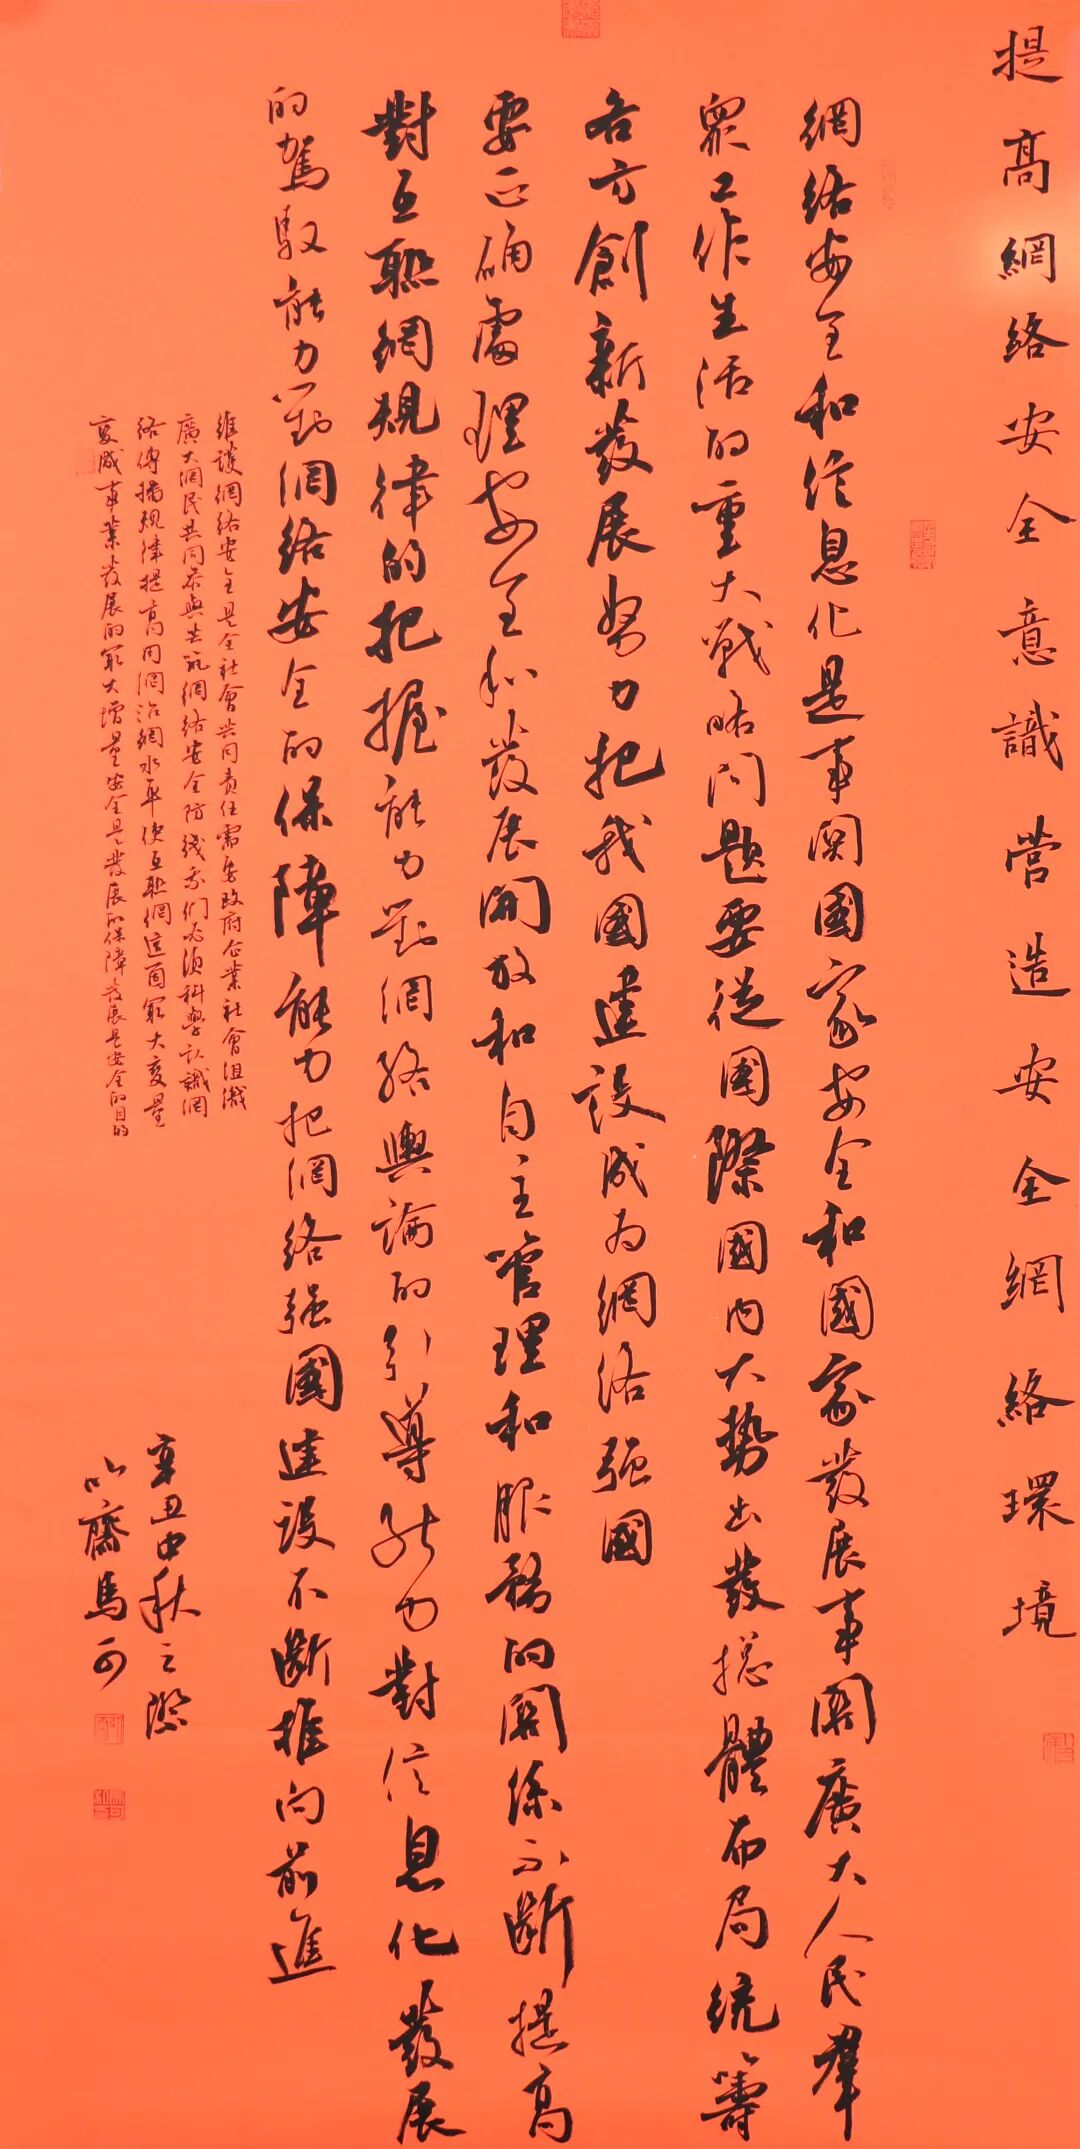 提高網絡安全意識營造安全網絡環境
網絡安全和信息化是事関國家安全和國家發展事關廣大人民羣
眾工作生活的重大戰略问題要從國際國内大勢出發揔體布局统籌
各方創新發展努力把我國建設成为網絡强國
要正确處理安全和發展開放和自主管理和服務的関係不斷提高
對互聯網规律的把握能力對網絡輿論的引導能力對信息化發展
的駕馭能力對網絡安全的保障能力把網络强國建設不斷推向前進
維護網絡安全是全社會共同责任需要政府企業社會组織
廣大網民共同参與共筑網絡安全防线我们必須科學认識網
络傳播规律提高用網治網水平使互聯網這個最大变量
变成事業發展的最大增量安全是發展的保障發展是安全的目的
辛丑中秋之際
以齋馬可